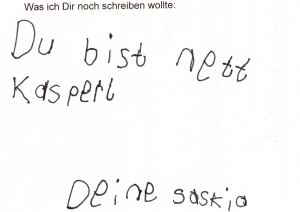 Was ich Dir noch schreiben wollte:
Du bist nett
Kasperl
Deine saskia